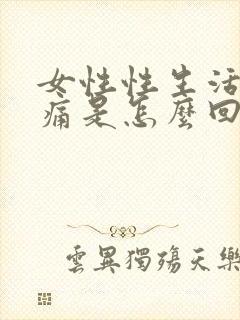 女性性生活
痛是怎麼回
雲異獨殤天樂